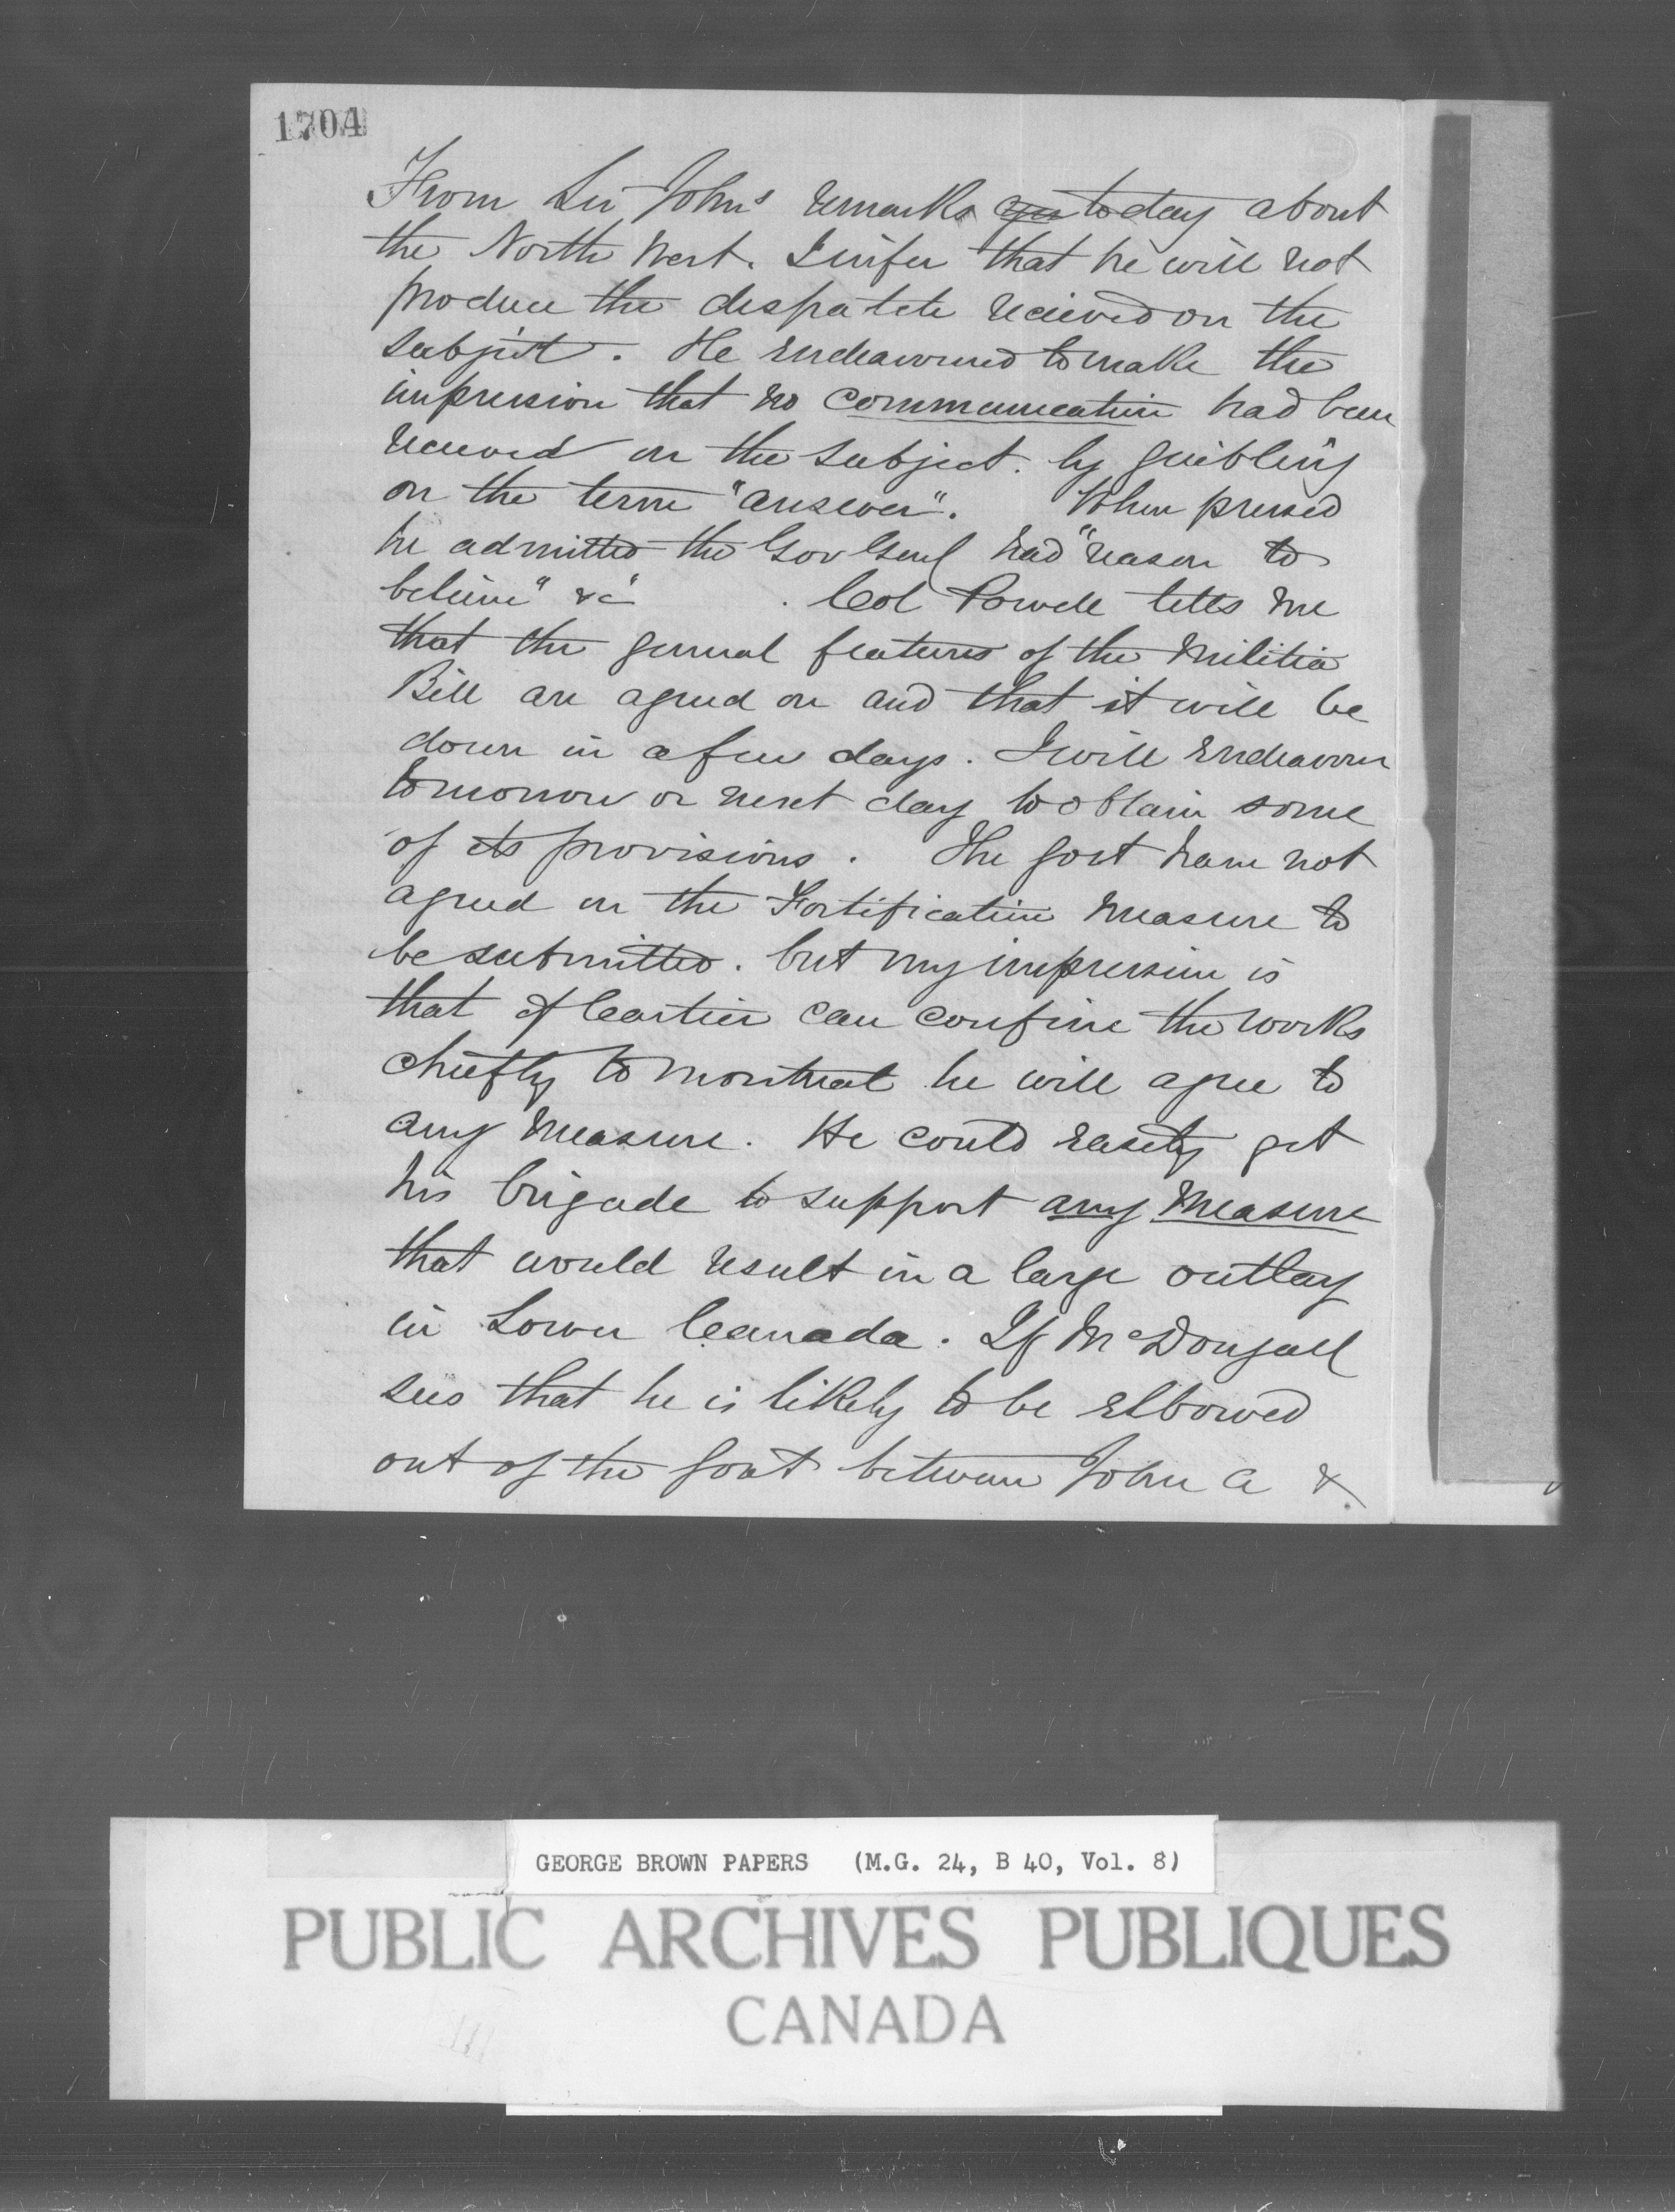 1704
From Sir John's remarks yes to day about
the North West. I infer that he will not
produce the despatch recieved on the
subject. He endeavoured to make the
impression that no communication had been
recieved on the subject. by quibbling
on the term "answer". When pressed
he admitted the Gov Genl had "reason to
believe" &c" . Col Powell tells me
that the general features of the Militia
Bill are agreed on and that it will be
down in a few days. I will endeavour
tomorrow or next day to obtain some
of its provisions. The Govt have not
agreed on the Fortification measure to
be submitted. but my impression is
that if Cartier can confine the works
chiefly to Montreal he will agree to
any measure. He could easily get
his brigade to support any measure
that would result in a large outlay
in Lower Canada. If McDougall
sees that he is likely to be elbowed
out of the Govt between John A &
GEORGE BROWN PAPERS (M.G. 24, B 40, Vol. 8)
PUBLIC ARCHIVES PUBLIQUES
CANADA